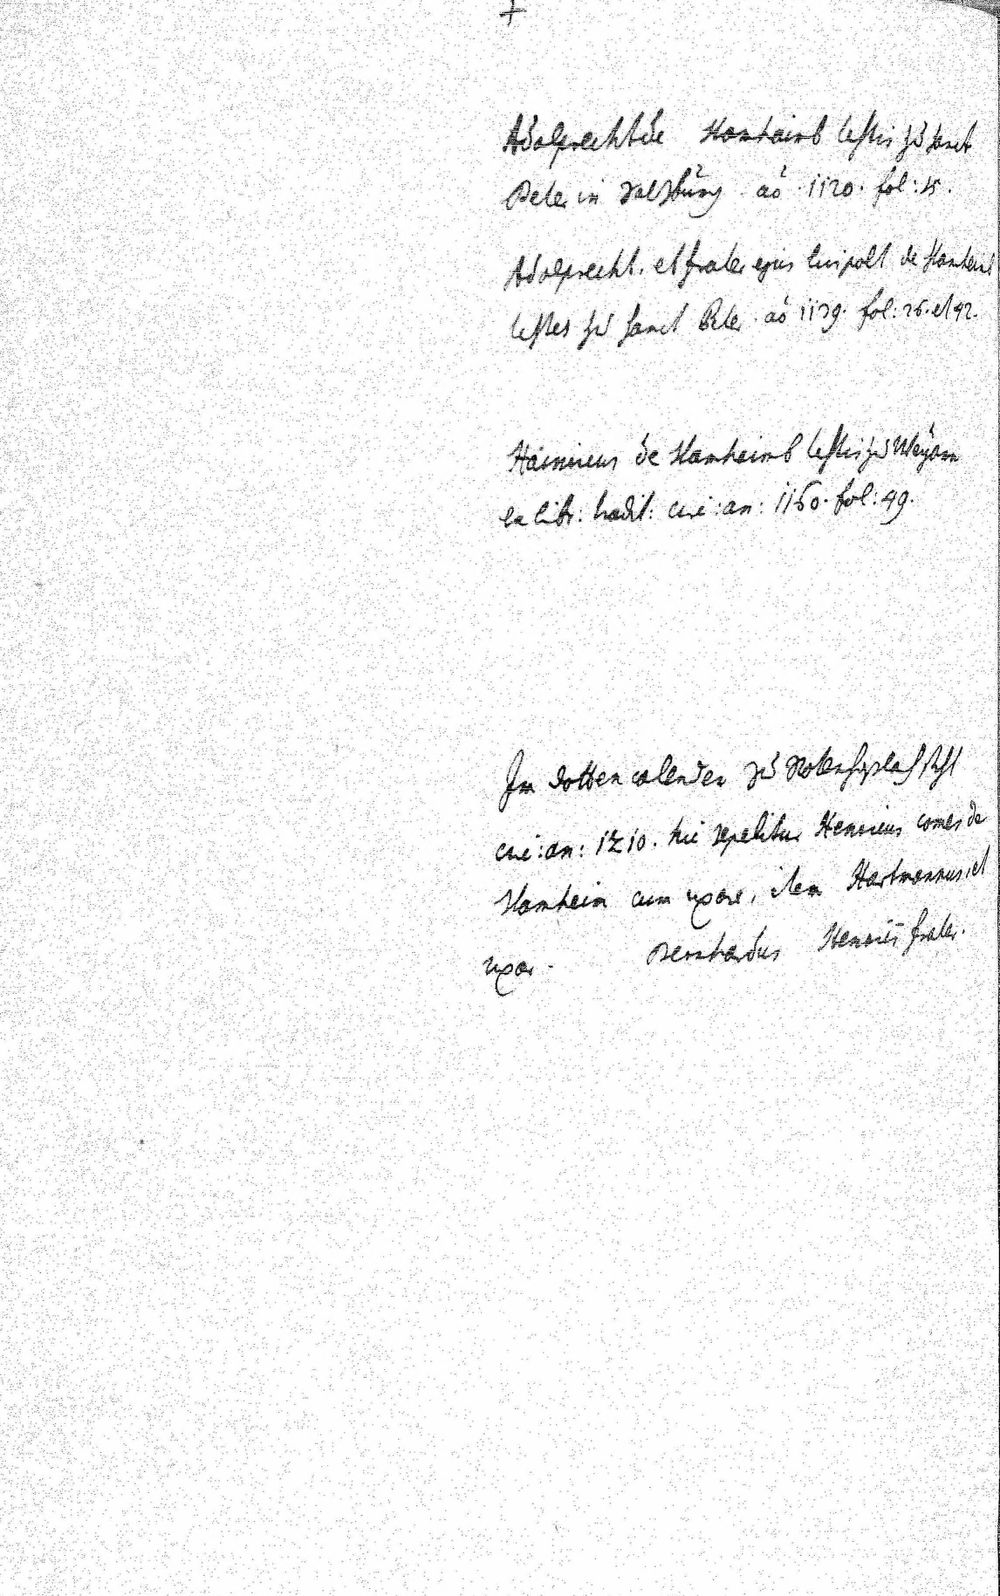 Adalprecht de Hanhaimb testis zu sanct
Peter in Salzburg aō 1120. fol: 15.
Adalprecht. et frater ejus Luipolt de Hanhaim
testes zu sanct Peter aō 1139. fol: 26. et 42.
Hainricus de Hanhaimb testis zu Weyarn
ex libr: tradit: cui: an: 1160. fol: 49.
Im dotten calender zu steht
cui: an: 1210. hic sepelitur Henricus comes de
Hanheim cum uxore, item Hartmannus, et
uxor. Bernhardus Henrici frater.